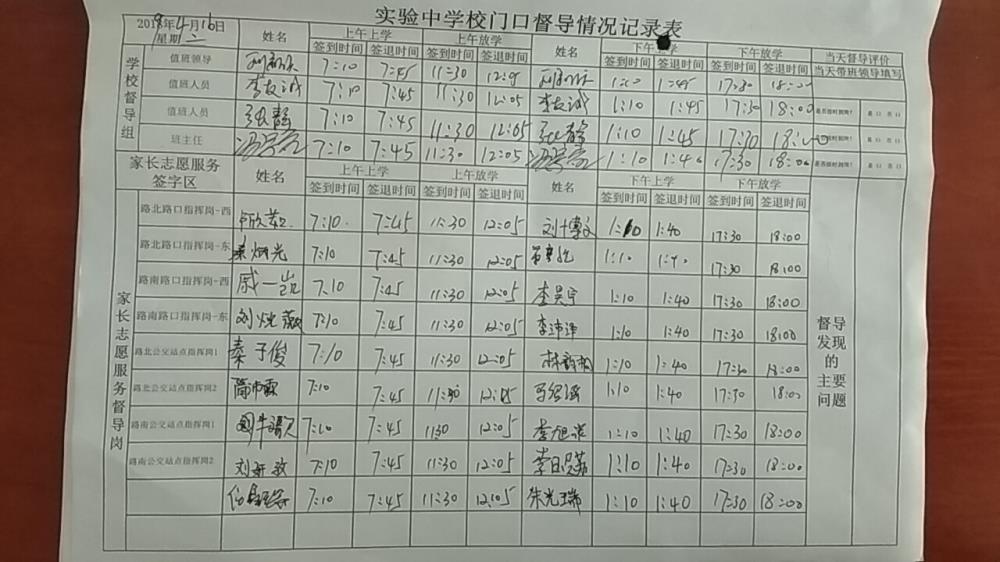 实验中学校门口督导情况记录表
2019年4月16日
星期二
姓名 上午上学 上午放学 姓名 下午上学 下午放学 当天督导评价
签到时间 签退时间 签到时间 签退时间 签到时间 签退时间 签到时间 签退时间 当天带班领导填写
学校督导组
值班领导 7:10 7:45 11:30 12:05 1:10 1:45 17:30 18:00
值班人员 李友诚 7:10 7:45 11:30 12:05 李友诚 1:10 1:45 17:30 18:00
值班人员 张静 7:10 7:45 11:30 12:05 张静 1:10 1:45 17:30 18:00
班主任 7:10 7:45 11:30 12:05 1:10 1:46 17:30 18:00
家长志愿服务签字区 姓名 上午上学 上午放学 姓名 下午上学 下午放学
签到时间 签退时间 签到时间 签退时间 签到时间 签退时间 签到时间 签退时间
家长志愿服务督导岗
路北路口指挥岗-西 7:10 7:45 11:30 12:05 刘博文 1:10 1:40 17:30 18:00
路北路口指挥岗-东 7:10 7:45 11:30 12:05 1:10 1:40 17:30 18:00
路南路口指挥岗-西 戚一岂 7:10 7:45 11:30 12:05 李昊宇 1:10 1:40 17:30 18:00
路南路口指挥岗-东 7:10 7:45 11:30 12:05 1:10 1:40 17:30 18:00
路北公交站点指挥岗1 秦子俊 7:10 7:45 11:30 12:05 1:10 1:40 17:30 18:00
路北公交站点指挥岗2 7:10 7:45 11:30 12:05 1:10 1:40 17:30 18:00
路南公交站点指挥岗1 7:10 7:45 11:30 12:05 1:10 1:40 17:30 18:00
路南公交站点指挥岗2 7:10 7:45 11:30 12:05 1:10 1:40 17:30 18:00
7:10 7:45 11:30 12:05 朱光瑞 1:10 1:40 17:30 18:00
督导发现的主要问题